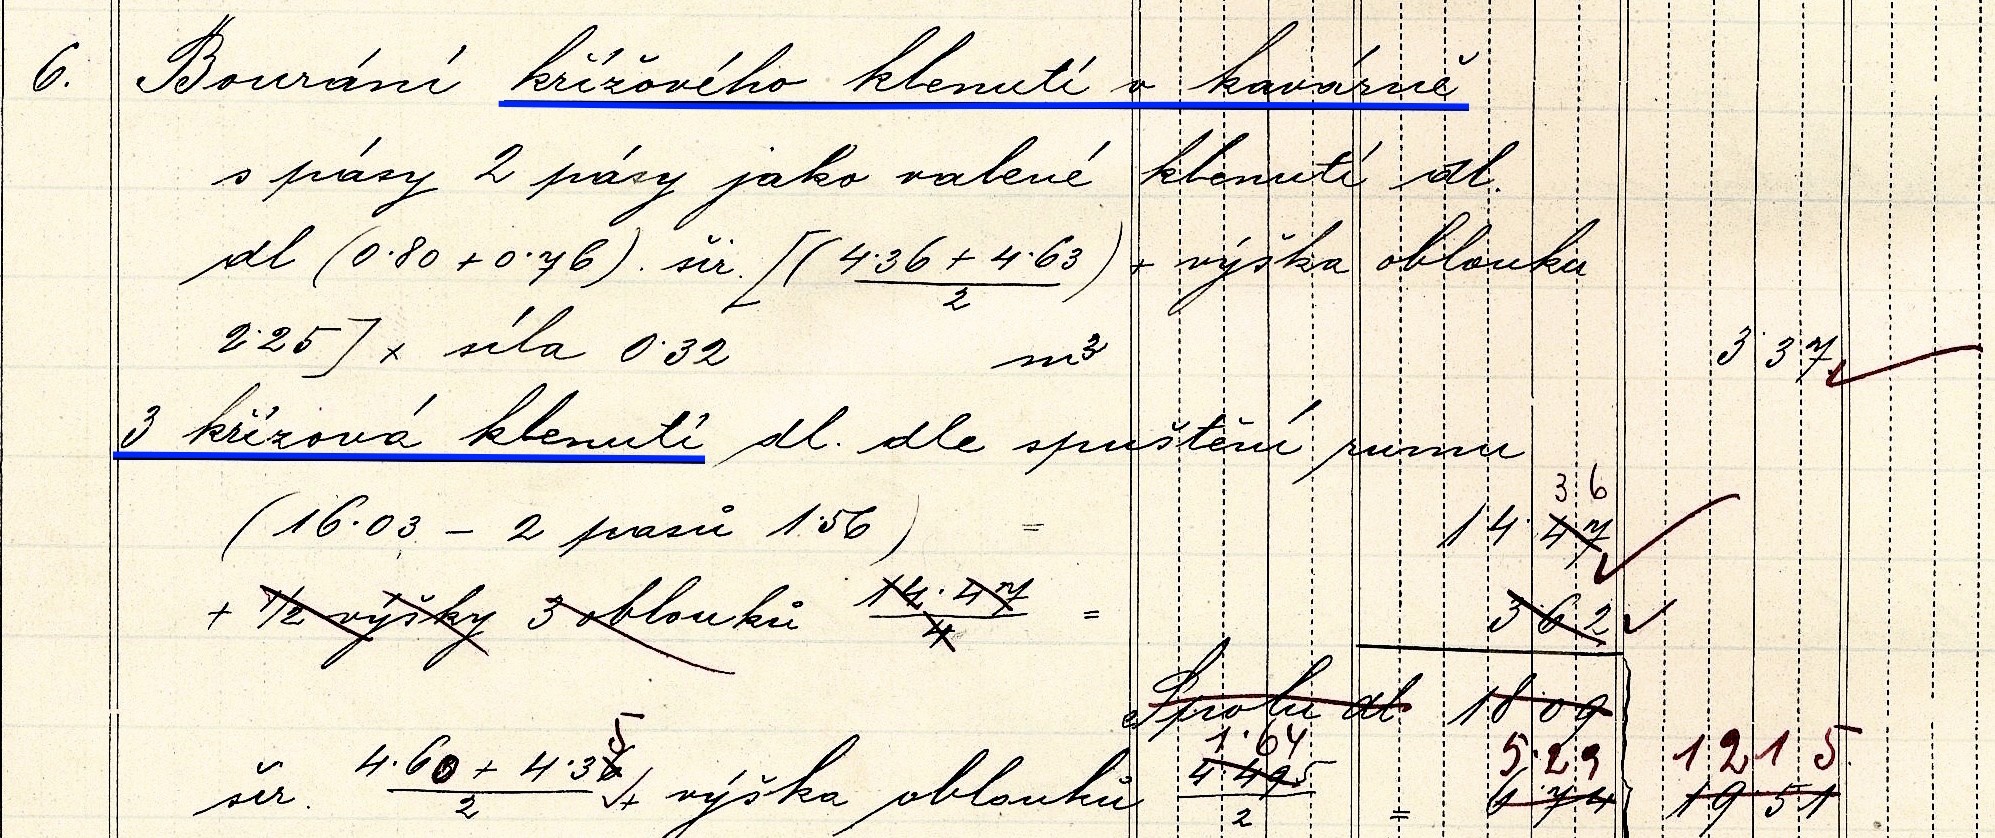 6. Bourání křížového klenutí v kavárně
s pásy 2 pásy jako valené klenutí dl.
dl (0·80 + 0·76). šir. [(4·36 + 4·63)/2 + výška oblouku
2·25] x síla 0·32 m³ 3·37
3 křízová klenutí dl. dle spuštění rumu
36
(16·03 - 2 pasů 1·56) = 14·47
+ 1/2 výšky 3 oblouků 14·47/4 = 3·62
Spolu dl 18·09
5 1·64 5·29 12 15
šir. 4·60 + 4·36/2 + výška oblouků 4·495/2 = 6·74 19·51